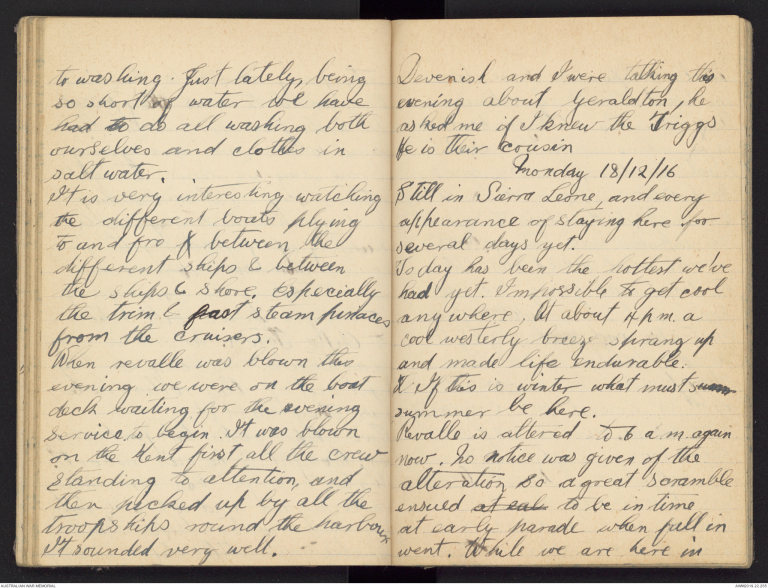 to washing. Just lately, being
so short of water we have
had to do all washing both
ourselves and clothes in
salt water.
It is very interesting watching
the different boats plying
to and fro between the
different ships & between
the ships & shore. Especially
the trim & fast steam pinnaces
from the cruisers.
When revalle was blown this
evening we were on the boat
deck waiting for the evening
service to begin. It was blown
on the Kent first, all the crew
standing to attention, and
then picked up by all the
troopships round the harbour
It sounded very well.
Devenish and I were talking this
evening about Geraldton, he
asked me if I knew the Triggs
He is their cousin
Monday 18/12/16
Still in Sierra Leone, and every
appearance of staying here for
several days yet.
Today has been the hottest we've
had yet. Impossible to get cool
anywhere. At about 4 p.m. a
cool westerly breeze sprang up
and made life endurable.
If this is winter what must
summer be here.
Revalle is altered to 6 a.m. again
now. No notice was given of the
alteration, so a great scramble
ensued to be in time
at early parade when fall in
went. While we are here in
AUSTRALIAN WAR MEMORIAL